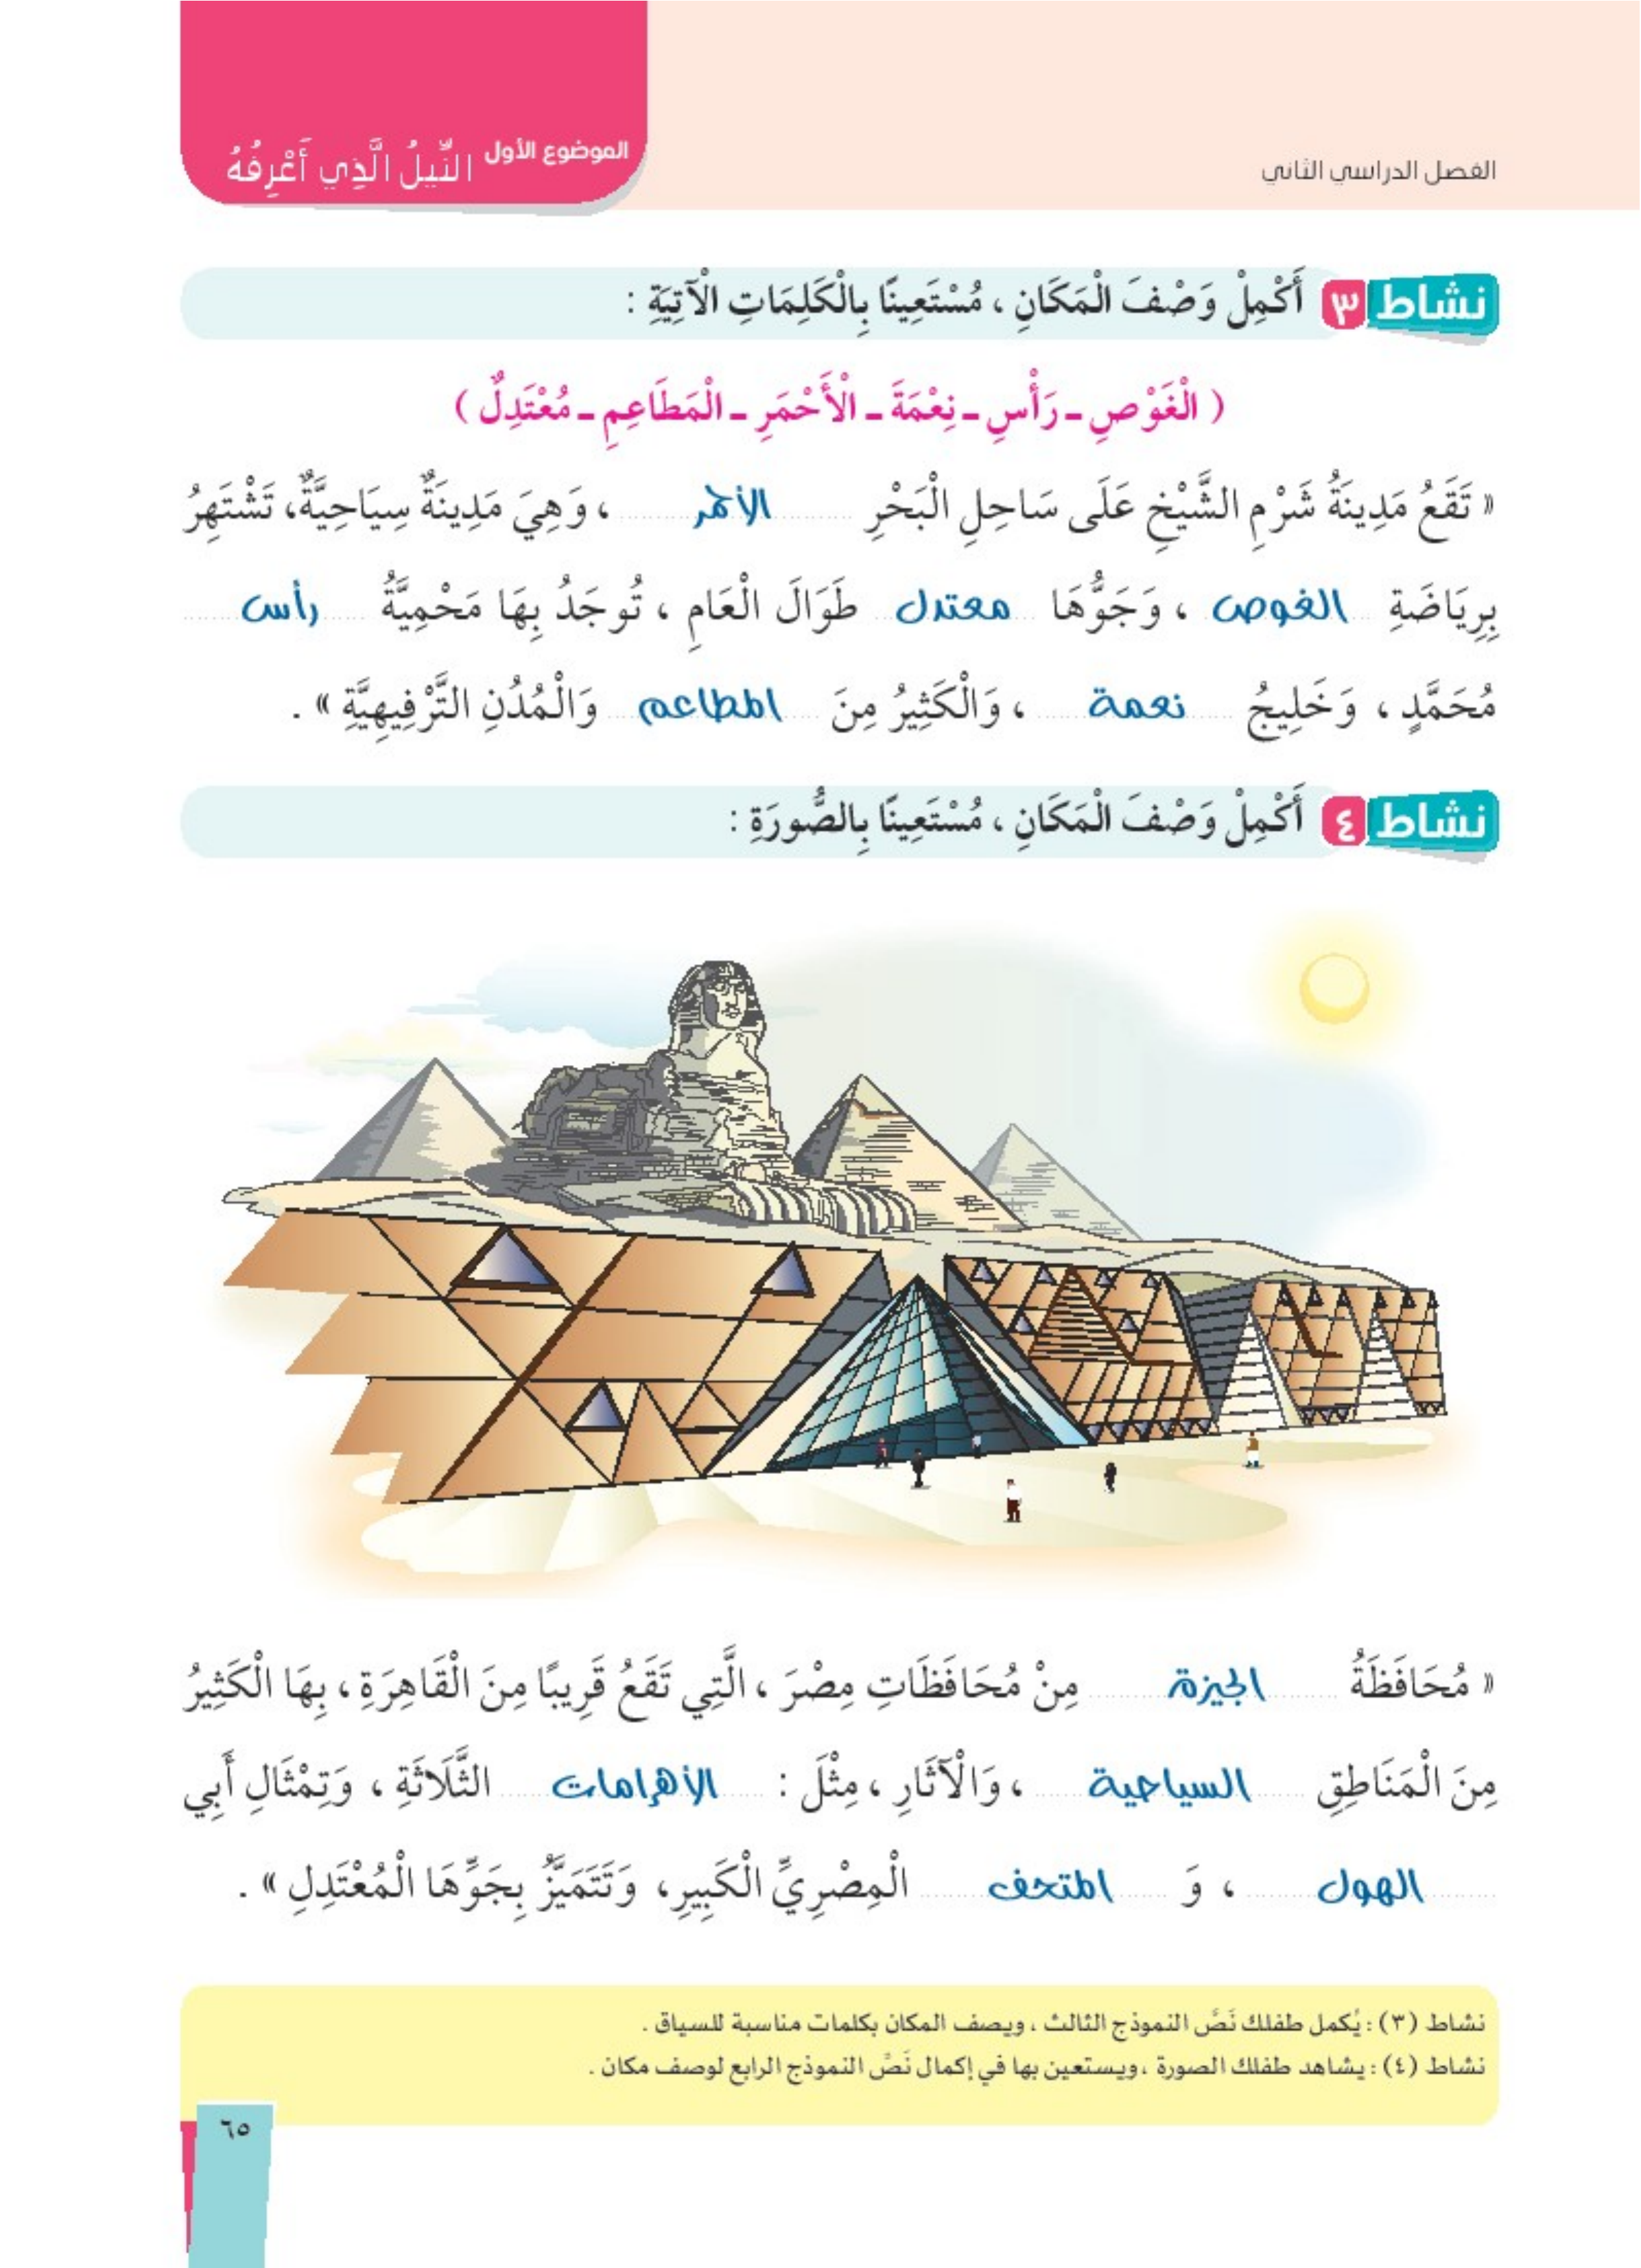 الفصل الدراسي الثاني
الموضوع الأول النِّيلُ الَّذِي أَعْرِفُهُ
نشاط ٣ أَكْمِلْ وَصْفَ الْمَكَانِ ، مُسْتَعِينًا بِالْكَلِمَاتِ الْآتِيَةِ :
( الْغَوْصِ - رَأْسِ - نِعْمَةَ - الْأَحْمَرِ - الْمَطَاعِمِ - مُعْتَدِلٌ )
« تَقَعُ مَدِينَةُ شَرْمِ الشَّيْخِ عَلَى سَاحِلِ الْبَحْرِ الأحمر ، وَهِيَ مَدِينَةٌ سِيَاحِيَّةٌ، تَشْتَهِرُ
بِرِيَاضَةِ الغوص ، وَجَوُّهَا معتدل طَوَالَ الْعَامِ ، تُوجَدُ بِهَا مَحْمِيَّةُ رأس
مُحَمَّدٍ ، وَخَلِيجُ نعمة ، وَالْكَثِيرُ مِنَ المطاعم وَالْمُدُنِ التَّرْفِيهِيَّةِ » .
نشاط ٤ أَكْمِلْ وَصْفَ الْمَكَانِ ، مُسْتَعِينًا بِالصُّورَةِ :
« مُحَافَظَةُ الجيزة مِنْ مُحَافَظَاتِ مِصْرَ ، الَّتِي تَقَعُ قَرِيبًا مِنَ الْقَاهِرَةِ ، بِهَا الْكَثِيرُ
مِنَ الْمَنَاطِقِ السياحية ، وَالْآثَارِ ، مِثْلَ : الأهرامات الثَّلَاثَةِ ، وَتِمْثَالِ أَبِي
الهول ، وَ المتحف الْمِصْرِيِّ الْكَبِيرِ، وَتَتَمَيَّزُ بِجَوِّهَا الْمُعْتَدِلِ » .
نشاط (٣) : يُكمل طفلك نَصَّ النموذج الثالث ، ويصف المكان بكلمات مناسبة للسياق .
نشاط (٤) : يشاهد طفلك الصورة ، ويستعين بها في إكمال نَصِّ النموذج الرابع لوصف مكان .
٦٥